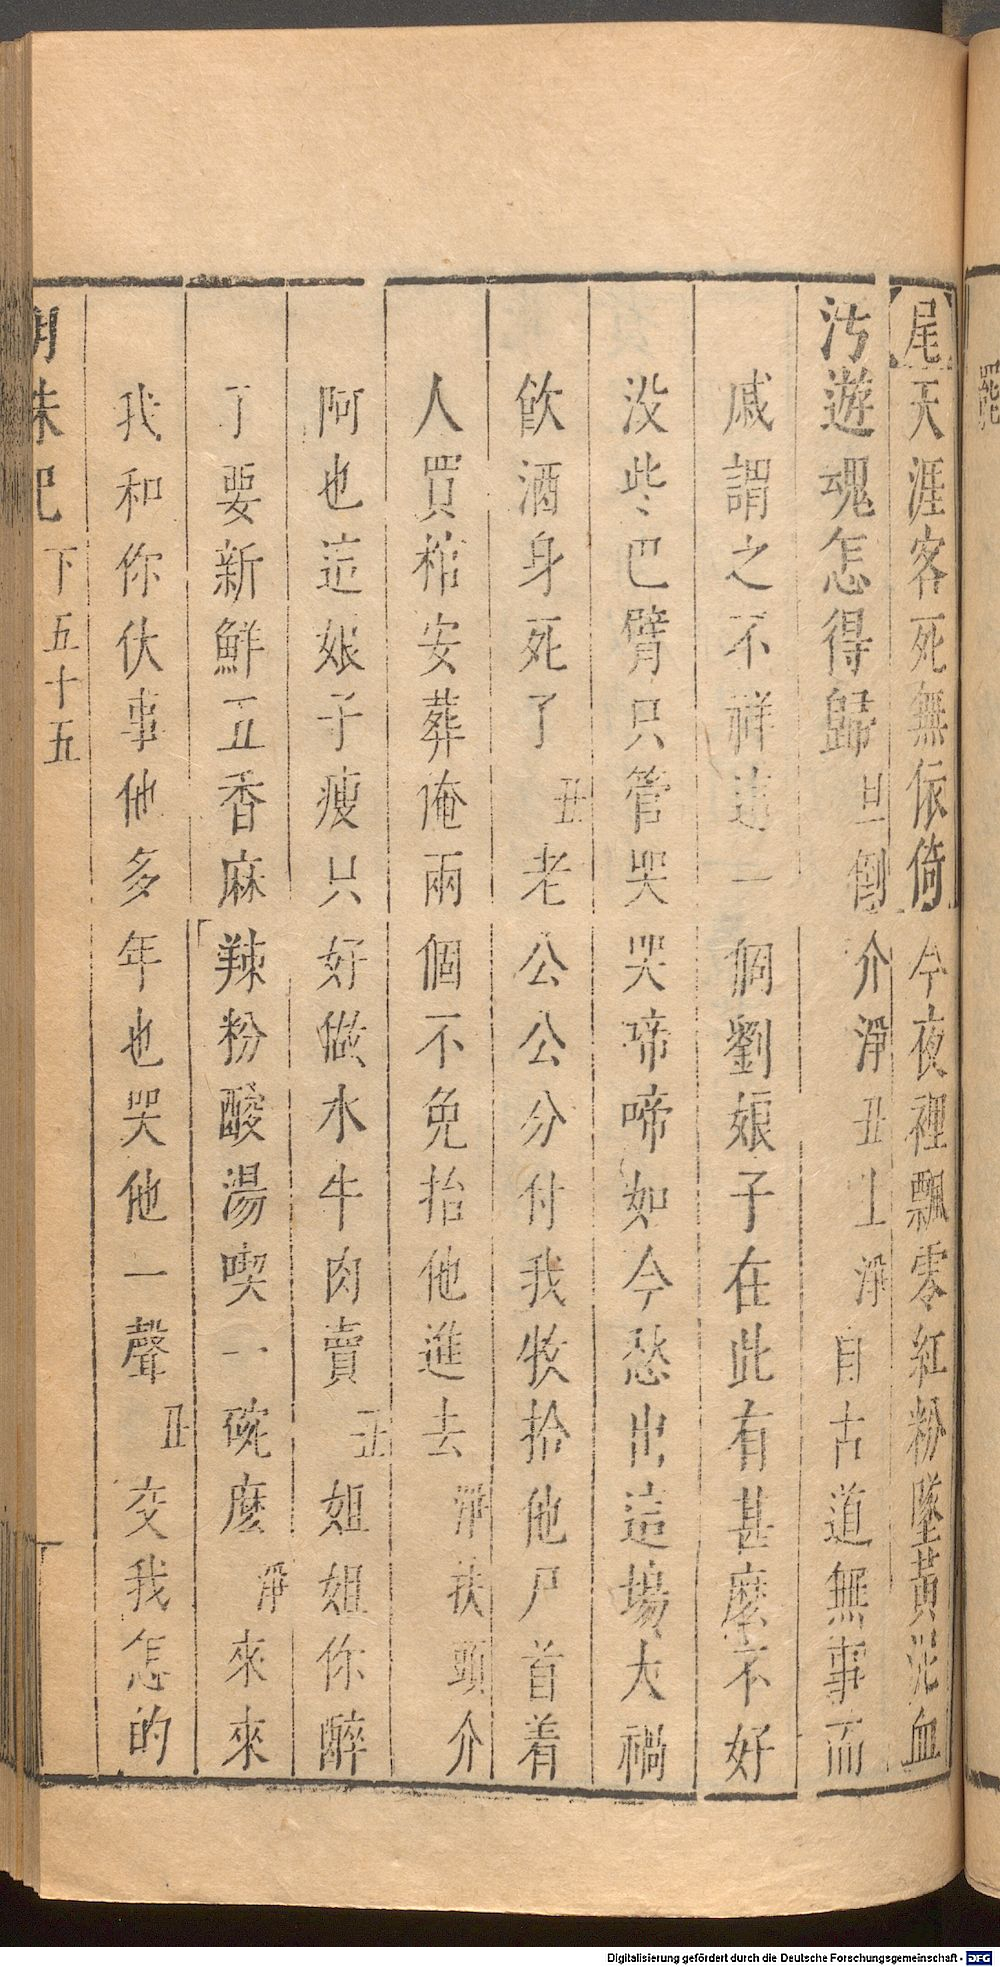 尾天涯客死無依倚今夜裡飄零紅粉墜黃泥血
汚遊魂怎得歸旦倒介淨丑上淨自古道無事而
戚謂之不祥這一個劉娘子在此有甚麼不好
没些巴臂只管哭哭啼啼如今愁出這場大禍
飲酒身死了丑老公公分付我收拾他尸首着
人買棺安葬俺兩個不免抬他進去淨扶頭介
阿也這娘子瘦只好做水牛肉賣丑姐姐你醉
了要新鮮五香麻辣粉酸湯喫一碗麽淨來來
我和你伏事他多年也哭他一聲丑交我怎的
下五十五
Digitalisierung gefördert durch die Deutsche Forschungsgemeinschaft - DFG